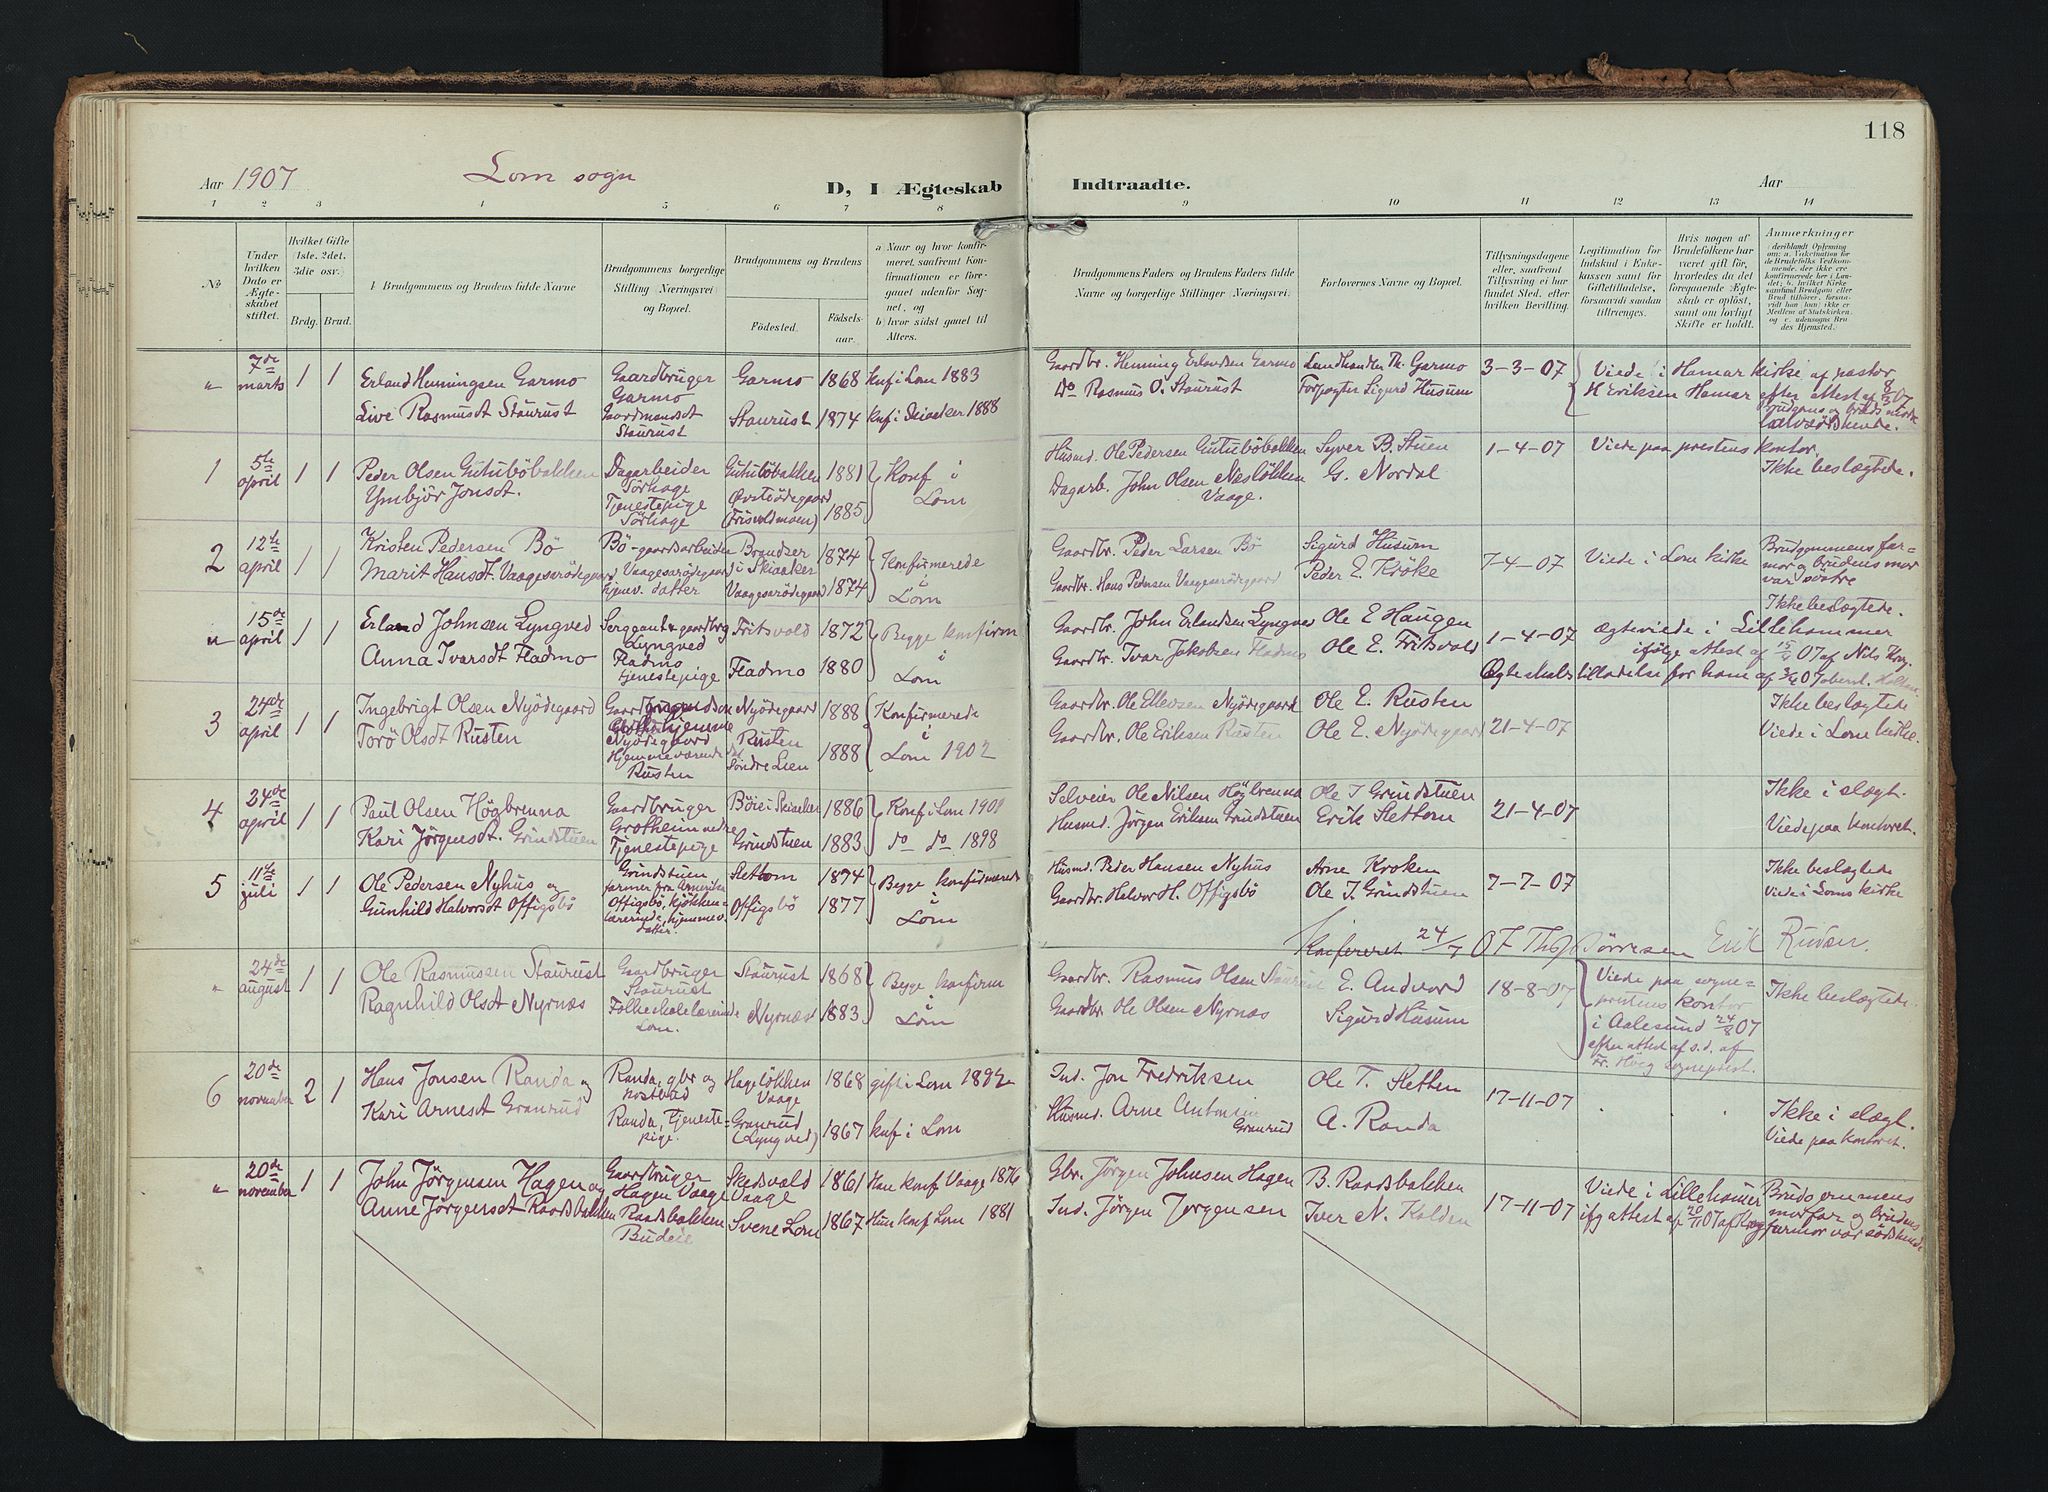 118
Aar 1907 Lom sogn D, I Ægteskab Indtraadte. Aar
1 2 3 4 5 6 7 8 9 10 11 12 13 14
No.
Under hvilken Dato er Ægteskabet stiftet.
Hvilket Gifte (1ste, 2det, 3die osv.)
Brdg. Brud.
Brudgommens og Brudens fulde Navne
Brudgommens borgerlige Stilling (Næringsvei) og Bopæl.
Brudgommens og Brudens
Fødested. Fødselsaar.
a Naar og hvor konfirmeret, saafremt Konfirmationen er foregaaet udenfor Sognet, og
b) hvor sidst gaaet til Alters.
Brudgommens Faders og Brudens Faders fulde Navne og borgerlige Stillinger (Næringsvei)
Forlovernes Navne og Bopæl.
Tillysningsdagene eller, saafremt Tillysning ei har fundet Sted, efter hvilken Bevilling.
Legitimation for Indskud i Enkekassen samt for Giftetilladelse, forsaavidt saadan tiltrænges.
Hvis nogen af Brudefolkene har været gift før, hvorledes da det foregaaende Ægteskab er opløst, samt om lovligt Skifte er holdt.
Anmerkninger
(deriblandt Oplysning om: a. Vakcination for de Brudefolks Vedkommende, der ikke ere konfirmerede her i Landet; b. hvilket Kirkesamfund Brudgom eller Brud tilhører, forsaavidt han (hun) ikke er Medlem af Statskirken, og c. udensogns Brudes Hjemsted.
" 7de marts 1 1
Erland Hemingsen Garmo
Live Rasmusdt Staurust
Gaardbruger Garmo
Gaardmandsdt Staurust
Garmo 1868 knf i Lom 1883
Staurust 1874 knf i Skiaaker 1888
Gaardbr. Heming Erlandsen Garmo
Do Rasmus O. Staurust
Landhandler Th. Garmo
Forpagter Sigurd Husum
3-3-07
Viede i Hamar kirke af pastor
H Eriksen Hamar efter attest af 8/3 07
1 5te april 1 1
Peder Olsen Gutuböbakken
Ymbjör Jonsdt.
Dagarbeider Sørhage
Tjenestepige Sørhage
Gutuböbakken 1881
Øvstiödegaard (Frisvoldmoen) 1885
Konf i Lom
Husmd. Ole Pedersen Gutuböbakken
Dagarb. John Olsen Næsløkken Vaage.
Syver B. Stuen
G. Nordal
1-4-07
Viede paa prestens kontor.
Ikke beslægtede.
2 12te april 1 1
Kristen Pedersen Bö
Marit Hansdt. Vaagesarödegaard
Bö-gaardsarbeider
Vaagesarödegaard hjemv. datter
Brandser i Skiaaker 1874
Vaagesarödegaard 1874
Konfirmerede i Lom
Gaardbr. Peder Larsen Bö
Gaardbr. Hans Pedersen Vaagesarödegaard
Sigurd Husum
Peder E. Kroke
7-4-07
Viede i Lom kirke
Brudgommens farmor og brudens mor var søstre
" 15de april 1 1
Erland Johnsen Lyngved
Anna Ivarsdt Fladmo
Serggant & gaardbrg Lyngved
Fladmo tjenestepige
Fritsvold 1872
Fladmo 1880
Begge konfirm i Lom
Gaardbr. John Erlandsen Lyngved
Gaardbr. Ivar Jakobsen Fladmo
Ole E Haugen
Ole E. Fritsvold
1-4-07
Ikke beslægtede.
Ægteviede i Lillehammer
ifølge attest af 15/4 07 af Nils Krog.
Ægteskabstilladelse for ham af 3/4 07
3 24de april 1 1
Ingebrigt Olsen Nyödegaard
Torö Olsdt Rusten
Nyödegaard
Hjemmeværende Rusten
Nyödegaard 1888
Rusten Söndre Lien 1888
Konfirmerede i Lom 1902
Gaardbr. Ole Ellevsen Nyödegaard
Gaardbr. Ole Eriksen Rusten
Ole E. Rusten
Ole E. Nyödegaard
21-4-07
Ikke beslægtede
Viede i Lom kirke.
4 24de april 1 1
Paul Olsen Högbrenna
Kari Jörgensdt. Grindstuen
Gaardbruger Grotheim nedre
Tjenestepige
Böie i Skiaaker 1886
Grindstuen 1883
Konf i Lom 1901
do do 1898
Selveier Ole Nilsen Högbrenna
Husmd. Jörgen Eriksen Grindstuen
Ole J Grindstuen
Erik Slettom
21-4-07
Ikke i slægt.
Viede paa kontoret.
5 11te juli 1 1
Ole Pedersen Nyhus og
Gunhild Halvorsdt Offigsbö
Grindstuen farmer fra Amerika
Offigsbö, kjökkenlærerinde, hjemmev. datter.
Slettom 1874
Offigsbö 1877
Begge konfirmerede i Lom
Husmd. Peder Hansen Nyhus
Gaardbr. Halvor H. Offigsbö
Arne Kroken
Ole J. Grindstuen
7-7-07
Ikke beslægtede
Viede i Loms kirke
Konfereret 24/7 07 Th Børresen Erik Rudsen.
" 24de august 1 1
Ole Rasmussen Staurust
Ragnhild Olsdt Nyrnæs
Gaardbruger Staurust
Folkeskolelærerinde Lom.
Staurust 1868
Nyrnæs 1883
Begge konfirm i Lom
Gaardbr. Rasmus Olsen Staurust
Gaardbr Ole Olsen Nyrnæs
E. Andvord
Sigurd Husum
18-8-07
Viede paa sogneprestens kontor
i Aalesund 24/8 07
efter attest af s.d. af
Fr. Höeg sogneprest.
Ikke beslægtede.
6 20de november 2 1
Hans Jonsen Randa og
Kari Arnesdt Granrud
Randa, gbr og
Randa, Tjenestepige.
Hageløkken Vaage 1868
Granrud (Lyngved) 1867
gift i Lom 1892
knf i Lom
Ind. Jon Fredriksen
Husmd. Arne Antonsen Granrud
Ole T. Sletten
A. Randa
17-11-07
Ikke i slægt.
Viede paa kontoret.
" 20de november 1 1
John Jörgensen Hagen og
Anne Jörgensdt Raadsbakken
Gaardbruger Hagen Vaage
Raadsbakken Budeie
Skedsvold Vaage 1861
Svene Lom 1867
Han konf Vaage 1876
Hun konf Lom 1881
Gbr. Jörgen Johnsen Hagen
Ind. Jörgen Jørgensen
B. Raadsbakken
Iver N. Kolden
17-11-07
Viede i Lillehamer
ifg attest af 20/11 07 af Krog
Brudgommens morfar og brudens farmor var sødskende